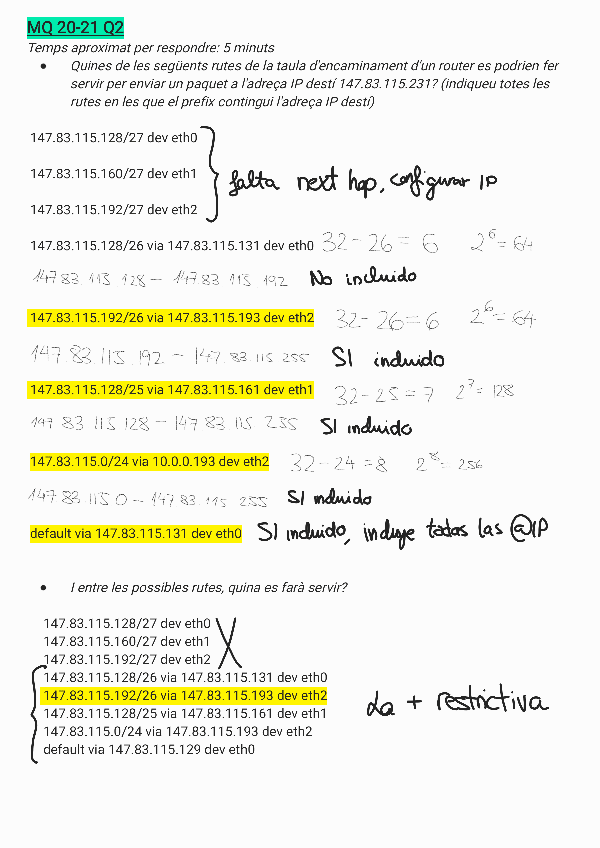 MQ 20-21 Q2
Temps aproximat per respondre: 5 minuts
• Quines de les següents rutes de la taula d'encaminament d'un router es podrien fer
servir per enviar un paquet a l'adreça IP destí 147.83.115.231? (indiqueu totes les
rutes en les que el prefix contingui l'adreça IP destí)
147.83.115.128/27 dev eth0
147.83.115.160/27 dev eth1
falta next hop, configurar IP
147.83.115.192/27 dev eth2
147.83.115.128/26 via 147.83.115.131 dev eth0 32-26= 6 2^6=64
147.83.115 128 - 147.83 115 192 No incluido
147.83.115.192/26 via 147.83.115.193 dev eth2 32-26=6 2^6=64
147.83.115.192 - 147.83.115 255 SI incluido
147.83.115.128/25 via 147.83.115.161 dev eth1 32-25=7 2^7=128
147 83.115 128 - 147.83.115 255 SI incluido
147.83.115.0/24 via 10.0.0.193 dev eth2 32-24=8 2^8=256
147 83 115 0 - 147.83.115 255 SI incluido
default via 147.83.115.131 dev eth0 SI incluido, incluye todas las @IP
• I entre les possibles rutes, quina es farà servir?
147.83.115.128/27 dev eth0
147.83.115.160/27 dev eth1
147.83.115.192/27 dev eth2
147.83.115.128/26 via 147.83.115.131 dev eth0
147.83.115.192/26 via 147.83.115.193 dev eth2
La + restrictiva
147.83.115.128/25 via 147.83.115.161 dev eth1
147.83.115.0/24 via 147.83.115.193 dev eth2
default via 147.83.115.129 dev eth0